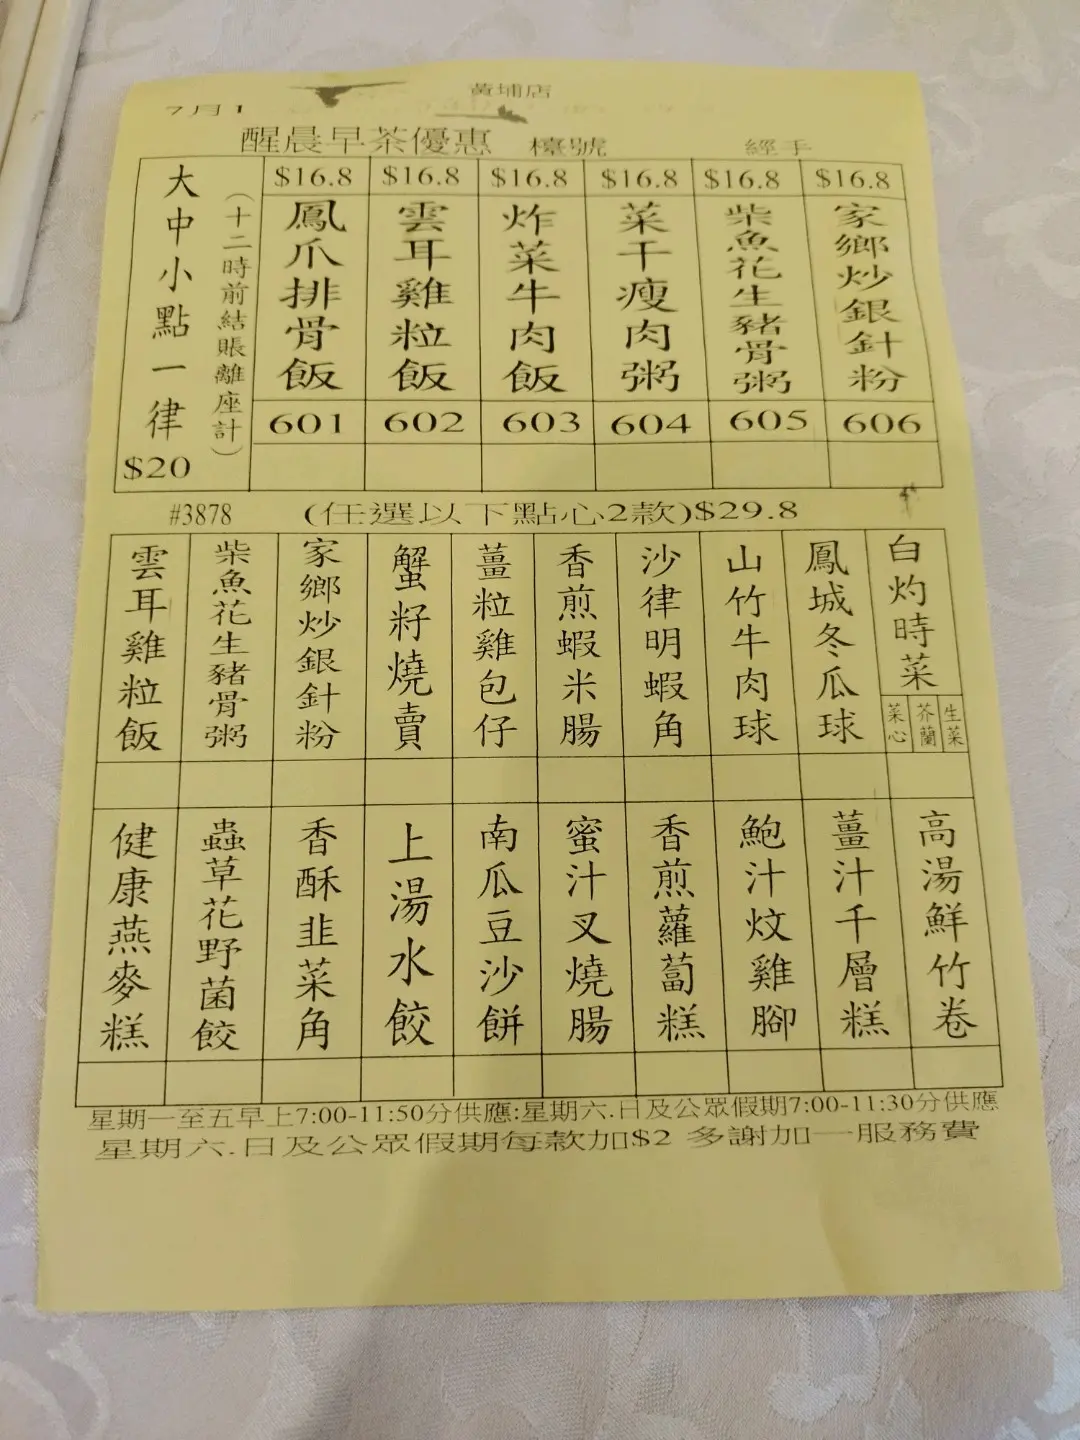 黃埔店
7月1
醒晨早茶優惠 檯號 經手
大中小點一律
$20
(十二時前結賬離座計)
$16.8 $16.8 $16.8 $16.8 $16.8 $16.8
鳳爪排骨飯
雲耳雞粒飯
炸菜牛肉飯
菜干瘦肉粥
柴魚花生豬骨粥
家鄉炒銀針粉
601 602 603 604 605 606
#3878 (任選以下點心2款)$29.8
雲耳雞粒飯
柴魚花生豬骨粥
家鄉炒銀針粉
蟹籽燒賣
薑粒雞包仔
香煎蝦米腸
沙律明蝦角
山竹牛肉球
鳳城冬瓜球
白灼時菜
菜心
芥蘭
生菜
健康燕麥糕
蟲草花野菌餃
香酥韭菜角
上湯水餃
南瓜豆沙餅
蜜汁叉燒腸
香煎蘿蔔糕
鮑汁炆雞腳
薑汁千層糕
高湯鮮竹卷
星期一至五早上7:00-11:50分供應:星期六.日及公眾假期7:00-11:30分供應
星期六.日及公眾假期每款加$2 多謝加一服務費